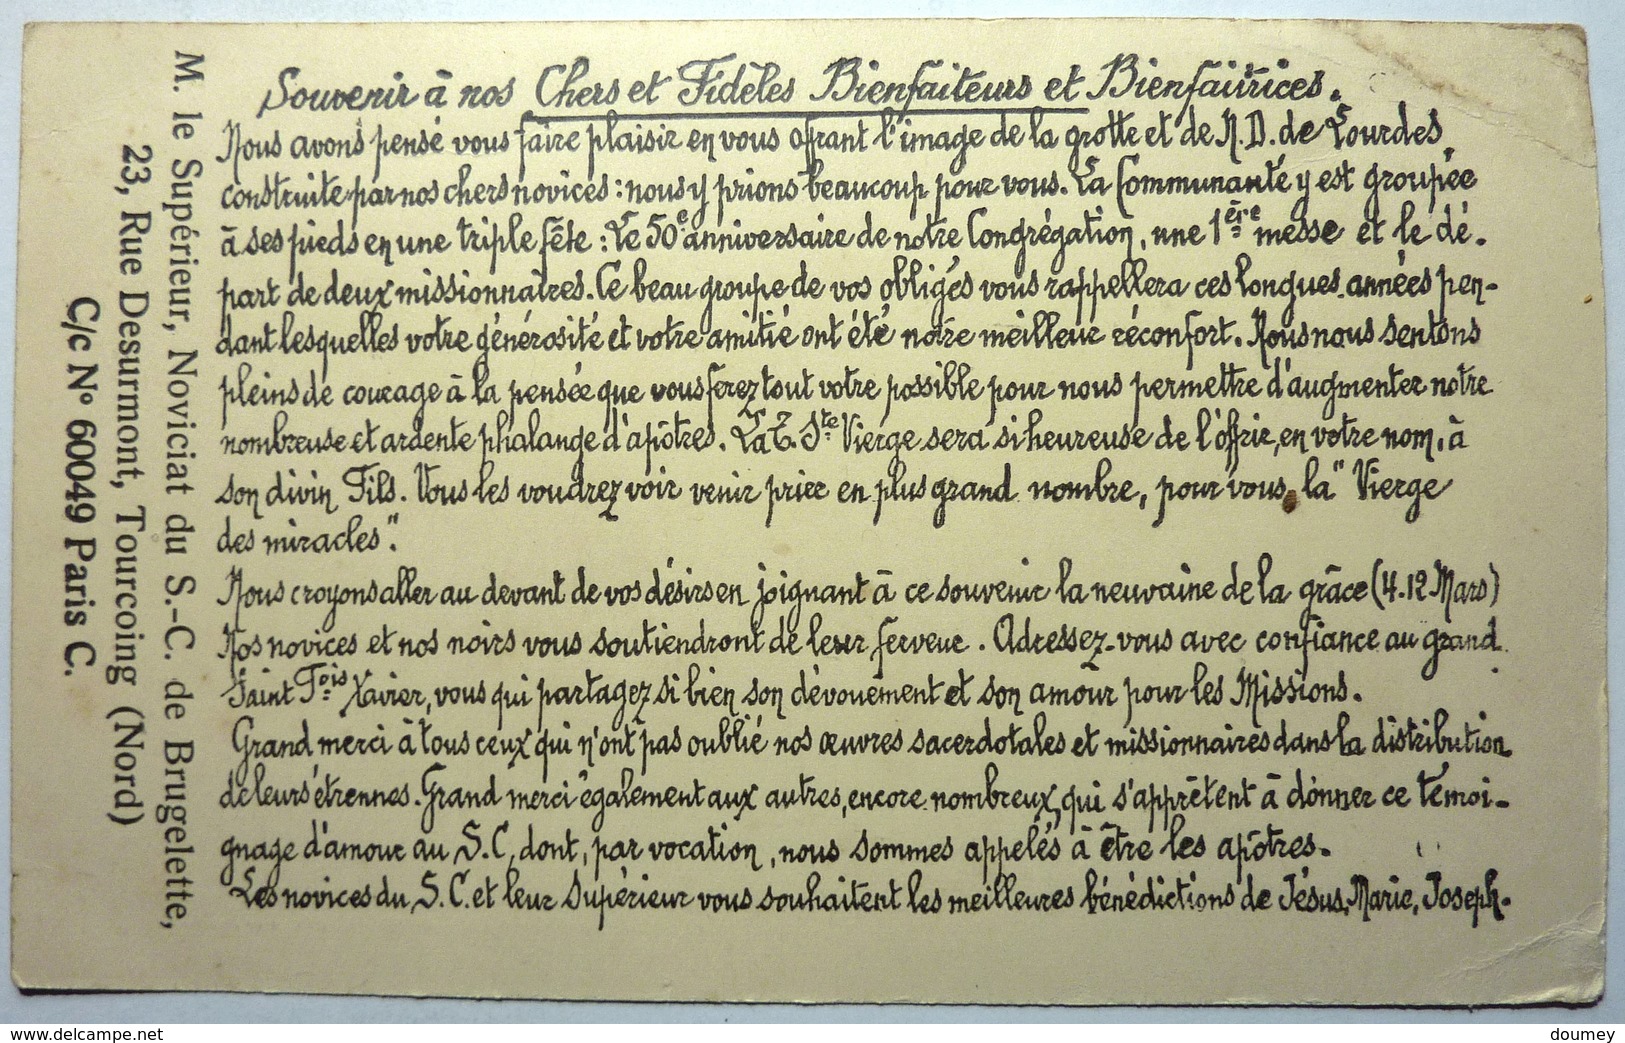 Souvenir à nos Chers et Fidèles Bienfaiteurs et Bienfaitrices.
Nous avons pensé vous faire plaisir en vous offrant l'image de la grotte et de N.D. de Lourdes,
construite par nos chers novices : nous y prions beaucoup pour vous. La Communauté y est groupée
à ses pieds en une triple fête : Le 50e anniversaire de notre Congrégation, une 1ère messe et le dé-
part de deux missionnaires. Ce beau groupe de vos obligés vous rappellera ces longues années pen-
dant lesquelles votre générosité et votre amitié ont été notre meilleur réconfort. Nous nous sentons
pleins de courage à la pensée que vous ferez tout votre possible pour nous permettre d'augmenter notre
nombreuse et ardente phalange d'apôtres. La T. Ste Vierge sera si heureuse de l'offrir, en votre nom, à
son divin Fils. Vous les voudrez voir venir prier en plus grand nombre, pour vous, la "Vierge
des miracles".
Nous croyons aller au devant de vos désirs en joignant à ce souvenir la neuvaine de la grâce (4-12 Mars)
Nos novices et nos noirs vous soutiendront de leur ferveur. Adressez-vous avec confiance au grand
Saint Fois Xavier, vous qui partagez si bien son dévouement et son amour pour les Missions.
Grand merci à tous ceux qui n'ont pas oublié nos œuvres sacerdotales et missionnaires dans la distribution
de leurs étrennes. Grand merci également aux autres, encore nombreux, qui s'apprêtent à donner ce témoi-
gnage d'amour au S.C, dont, par vocation, nous sommes appelés à être les apôtres.
Les novices du S.C. et leur Supérieur vous souhaitent les meilleures bénédictions de Jésus, Marie, Joseph.
M. le Supérieur, Noviciat du S.-C. de Brugelette,
23, Rue Desurmont, Tourcoing (Nord)
C/c N° 60049 Paris C.
www.delcampe.net
doumey